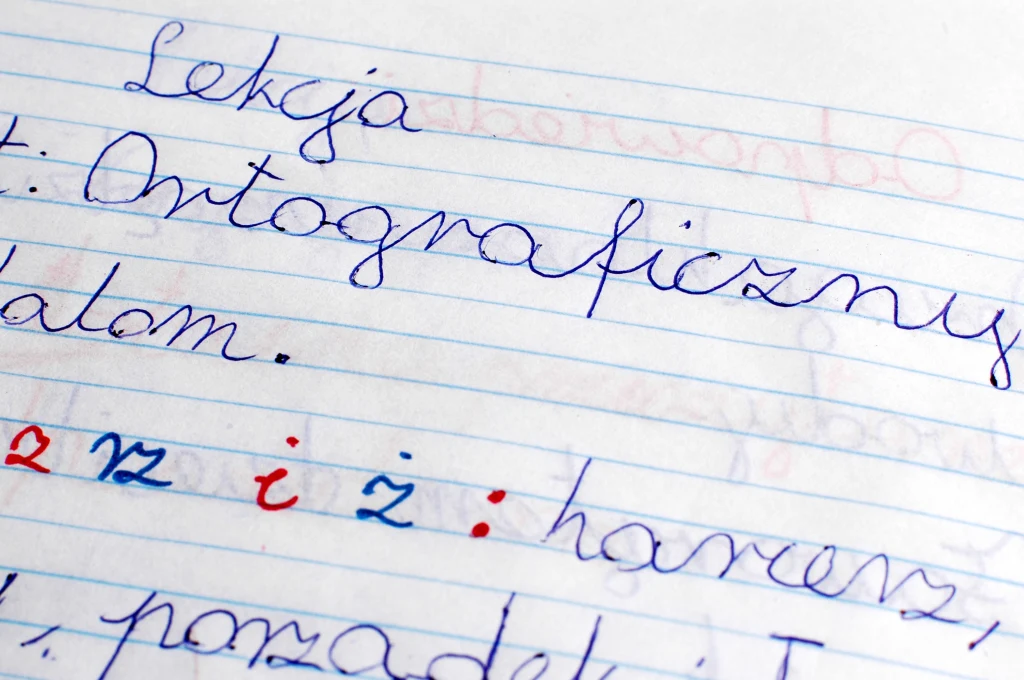 Lekcja
t: Ortograficzny
alom.
z rz i ż: harcerz,
porządek i